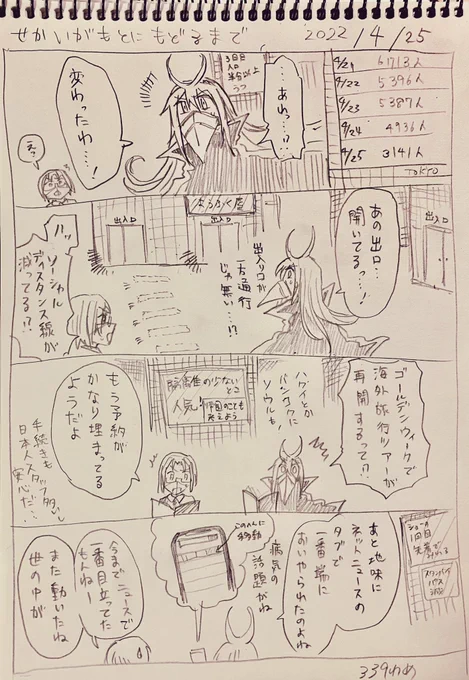 せかいがもとにもどるまで
2022 / 4 / 25
4/21 6713人
4/22 5396人
4/23 5387人
4/24 4936人
4/25 3141人
TOKYO
3回目
人口
半分以上
…あれっ…!?
変わったわ…!
えっ
出入口
あの出口…
開いてるっ…!
出入口
出入口
出入り口が
一方通行
じゃ無い…!?
ハッ
ソーシャル
ディスタンス線が
減ってる!?
ゴールデンウィークで
海外旅行ツアーが
再開するって!?
ハワイとか
バンコクに
ソウルも!
の少ないとこ
人気!
もう予約が
かなり埋まってる
ようだよ
手続きも
日本人スタッフなら
安心だ…
1回目
あと地味に
ネットニュースの
タブで
一番端に
おいやられたのよね
病気の
話題がね
このへんに
移動
今までニュースで
一番目立ってた
もんね
また動いたね
世の中が
339わめ